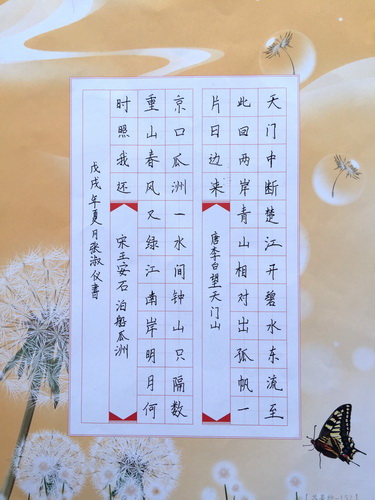 天门中断楚江开碧水东流至
此回两岸青山相对出孤帆一
片日边来
唐李白望天门山
京口瓜洲一水间钟山只隔数
重山春风又绿江南岸明月何
时照我还
宋王安石泊船瓜洲
戊戌年夏月张淑仪书